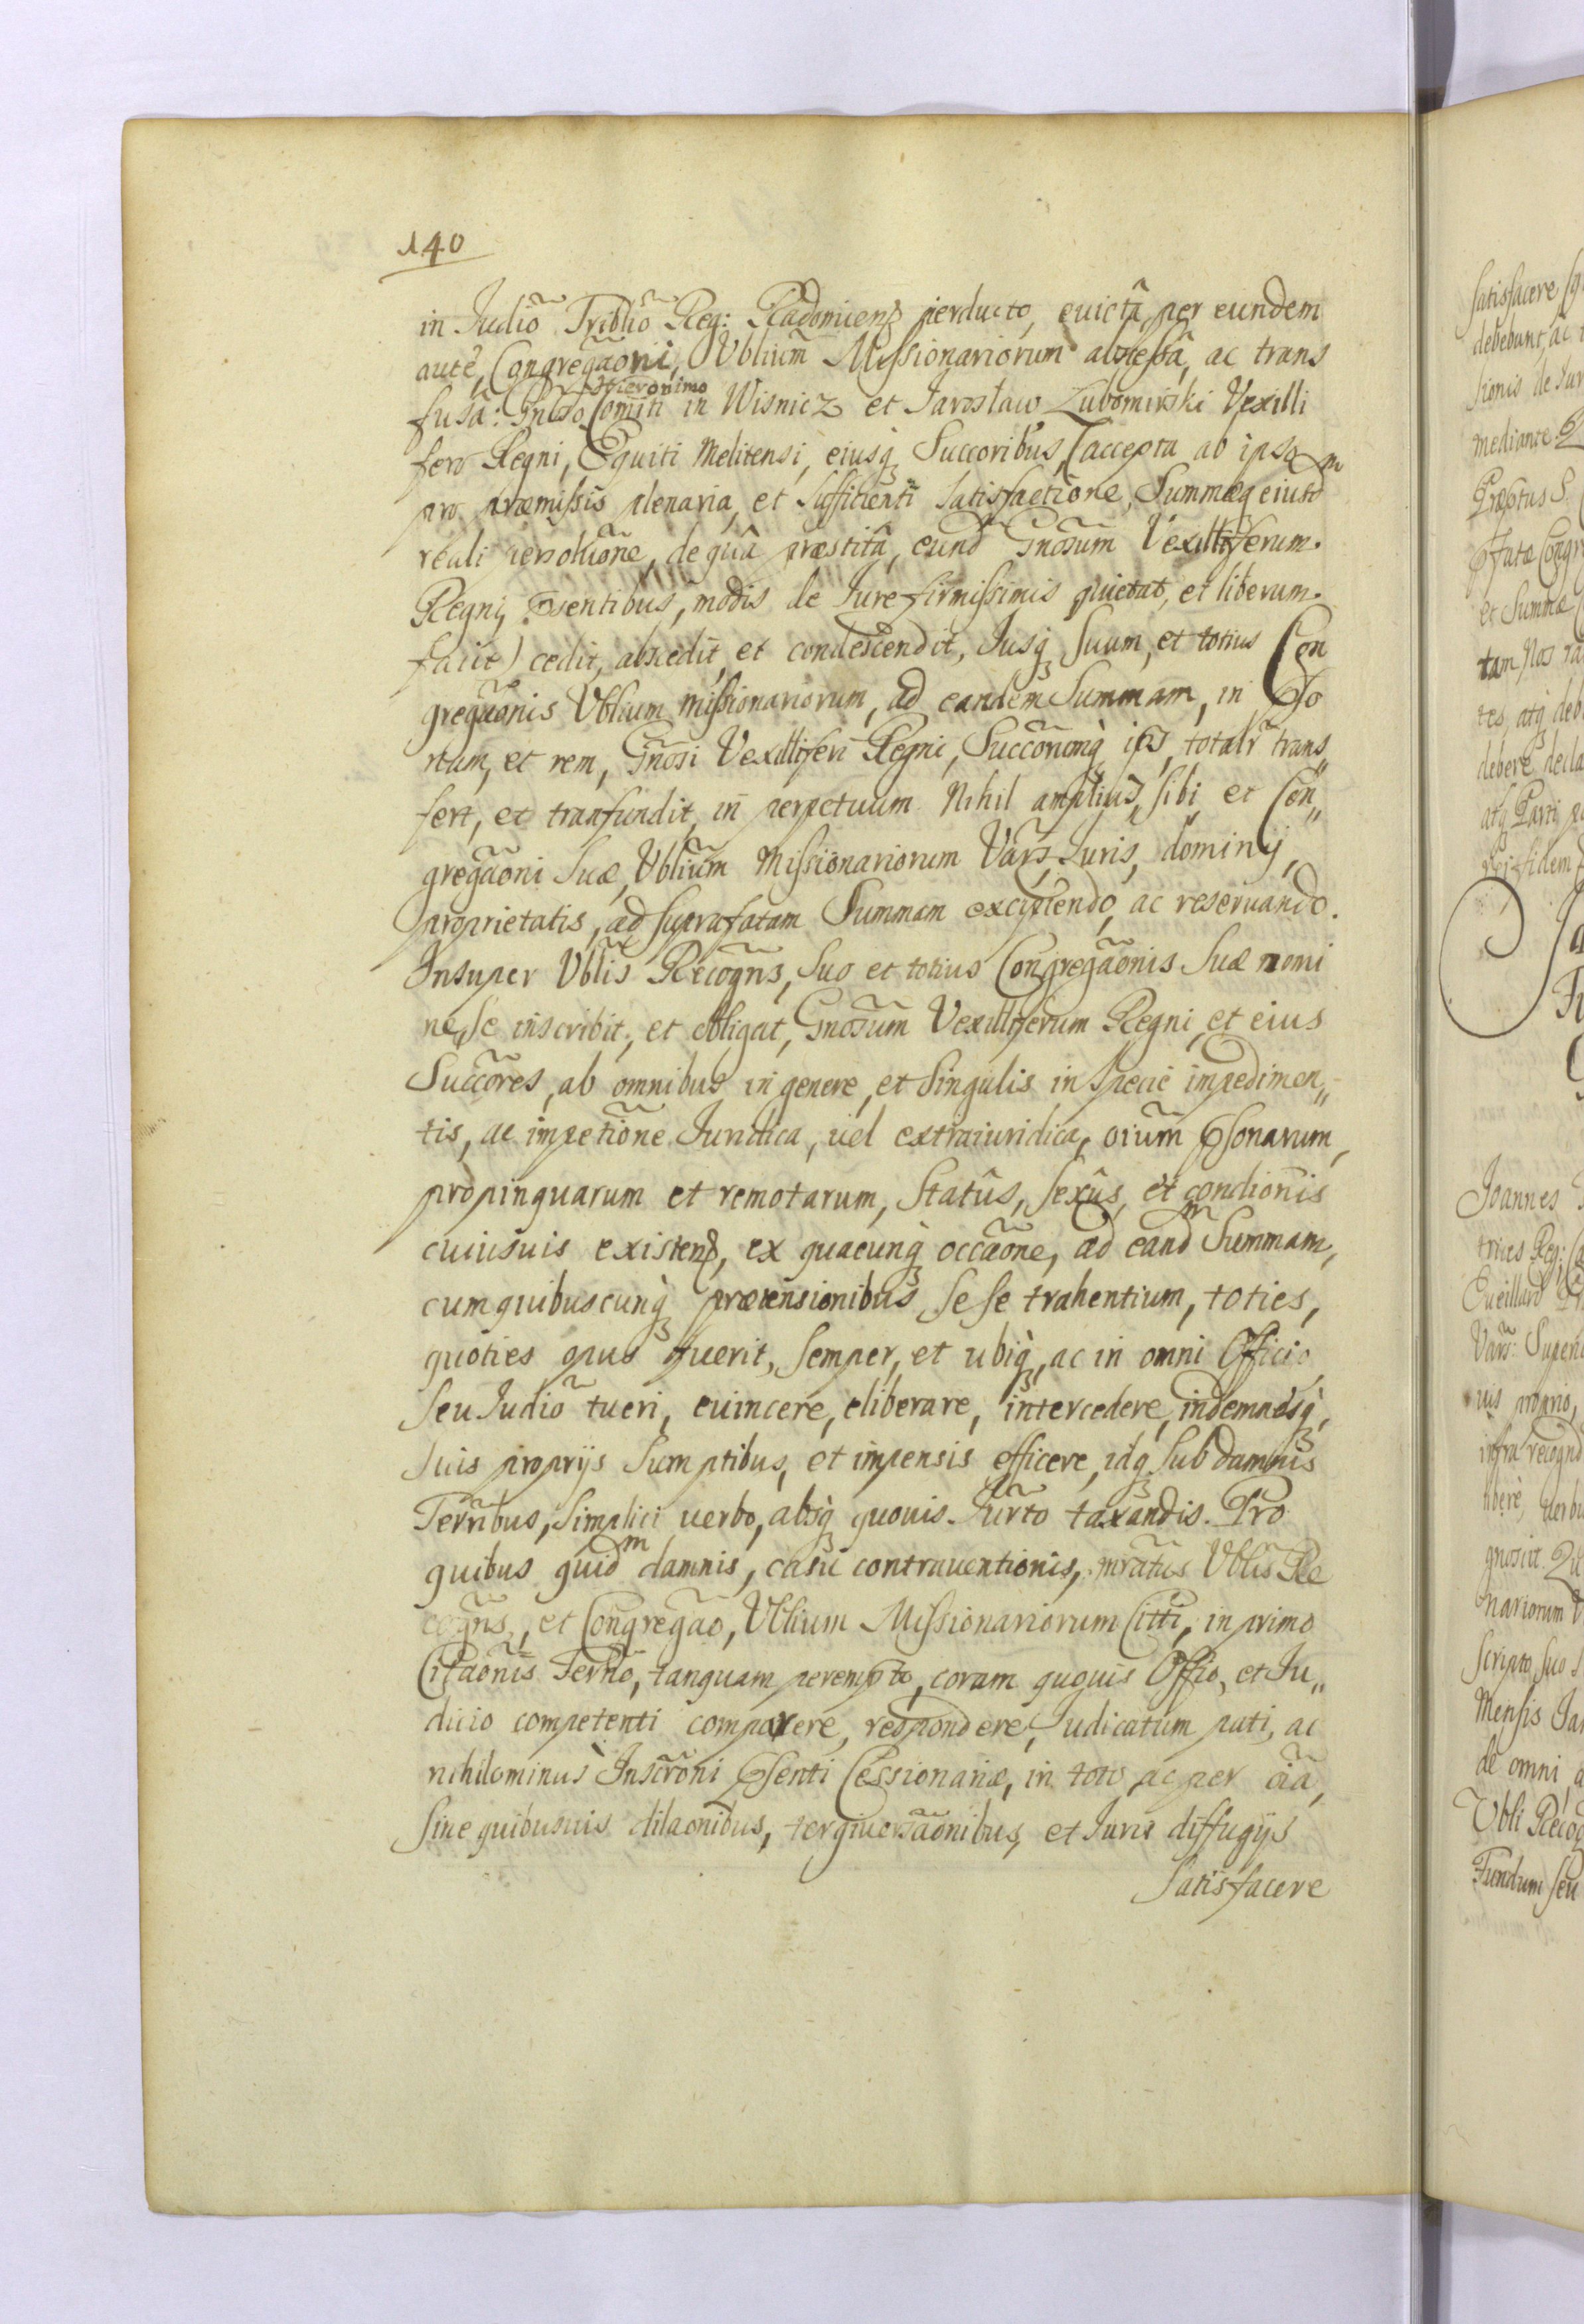 140
in Judiõ Tribliõ Reg: Radomiens perducto, evictâ, per eundem
autẽ, Congregãoni, Vblium̃ Missionariorum abscessâ, ac trans
Hieronimo
fusâ: Gnoso Comiti in Wisnicz et Jarosław Lubomirski Vexilli
fero Regni, Equiti Melitensi, eiusq Succoribus, (accepta ab ipso
pro præmissis plenaria, et sufficienti satisfactione, Summæq eiusdm
reali persolutione, de quâ præstitâ, eundm Gnosum Vexilliferum
Regni, Psentibus, modis de Jure firmissimis quietat, et liberum
facit) cedit, abscedit, et condescendit, Jusq Suum, et totius Con
gregaonis Vblium Missionariorum, ad eandem Summam, in Pso
nam, et rem, Gnosi Vexilliferi Regni, Succorumq ips, totalr trans„
fert, et transfundit, in perpetuum Nihil amplius, sibi et Con„
gregãoni Suæ, Vblium̃ Missionariorum Vars, Juris, dominij,
proprietatis, ad suprafatam Summam excipiendo, ac reservando.
Insuper Vblis Recogns, Suo et totius Congregãonis Suæ nomi
ne, se inscribit, et obligat, Gnosum Vexilliferum Regni, et eius
Succores, ab omnibus in genere, et singulis in specie impedimen„
tis, ac impetione Juridica, vel extraiuridica, oium̃ Psonarum,
propinquarum et remotarum, Statûs, sexûs, et condionis
cuiusvis existens, ex quacunq occãone, ad eandm Summam,
cum quibuscunq prætensionibus sese trahentium, toties,
quoties opus fuerit, semper, et ubiq, ac in omni Officio
seu Judiõ tueri, evincere, eliberare, intercedere, indemnesq,
suis proprijs sumptibus, et impensis efficere, idq sub damnis
Ternbus, simplici verbo, absq quovis Jurto taxandis. Pro
quibus quidm damnis, casu contraventionis, mratus Vblis Re
cogns, et Congregao, Vblium Missionariorum Citti, in primo
Citaonis Termo, tanquam perempto, coram quovis Offio, et Ju„
dicio competenti comparere, respondere, Judicatum pati, ac
nihilominus Inscroni Psenti Cessionariæ, in toto, ac per oia,
sine quibusvis dilaonibus, tergiversãonibus, et Juris diffugijs
Satisfacere